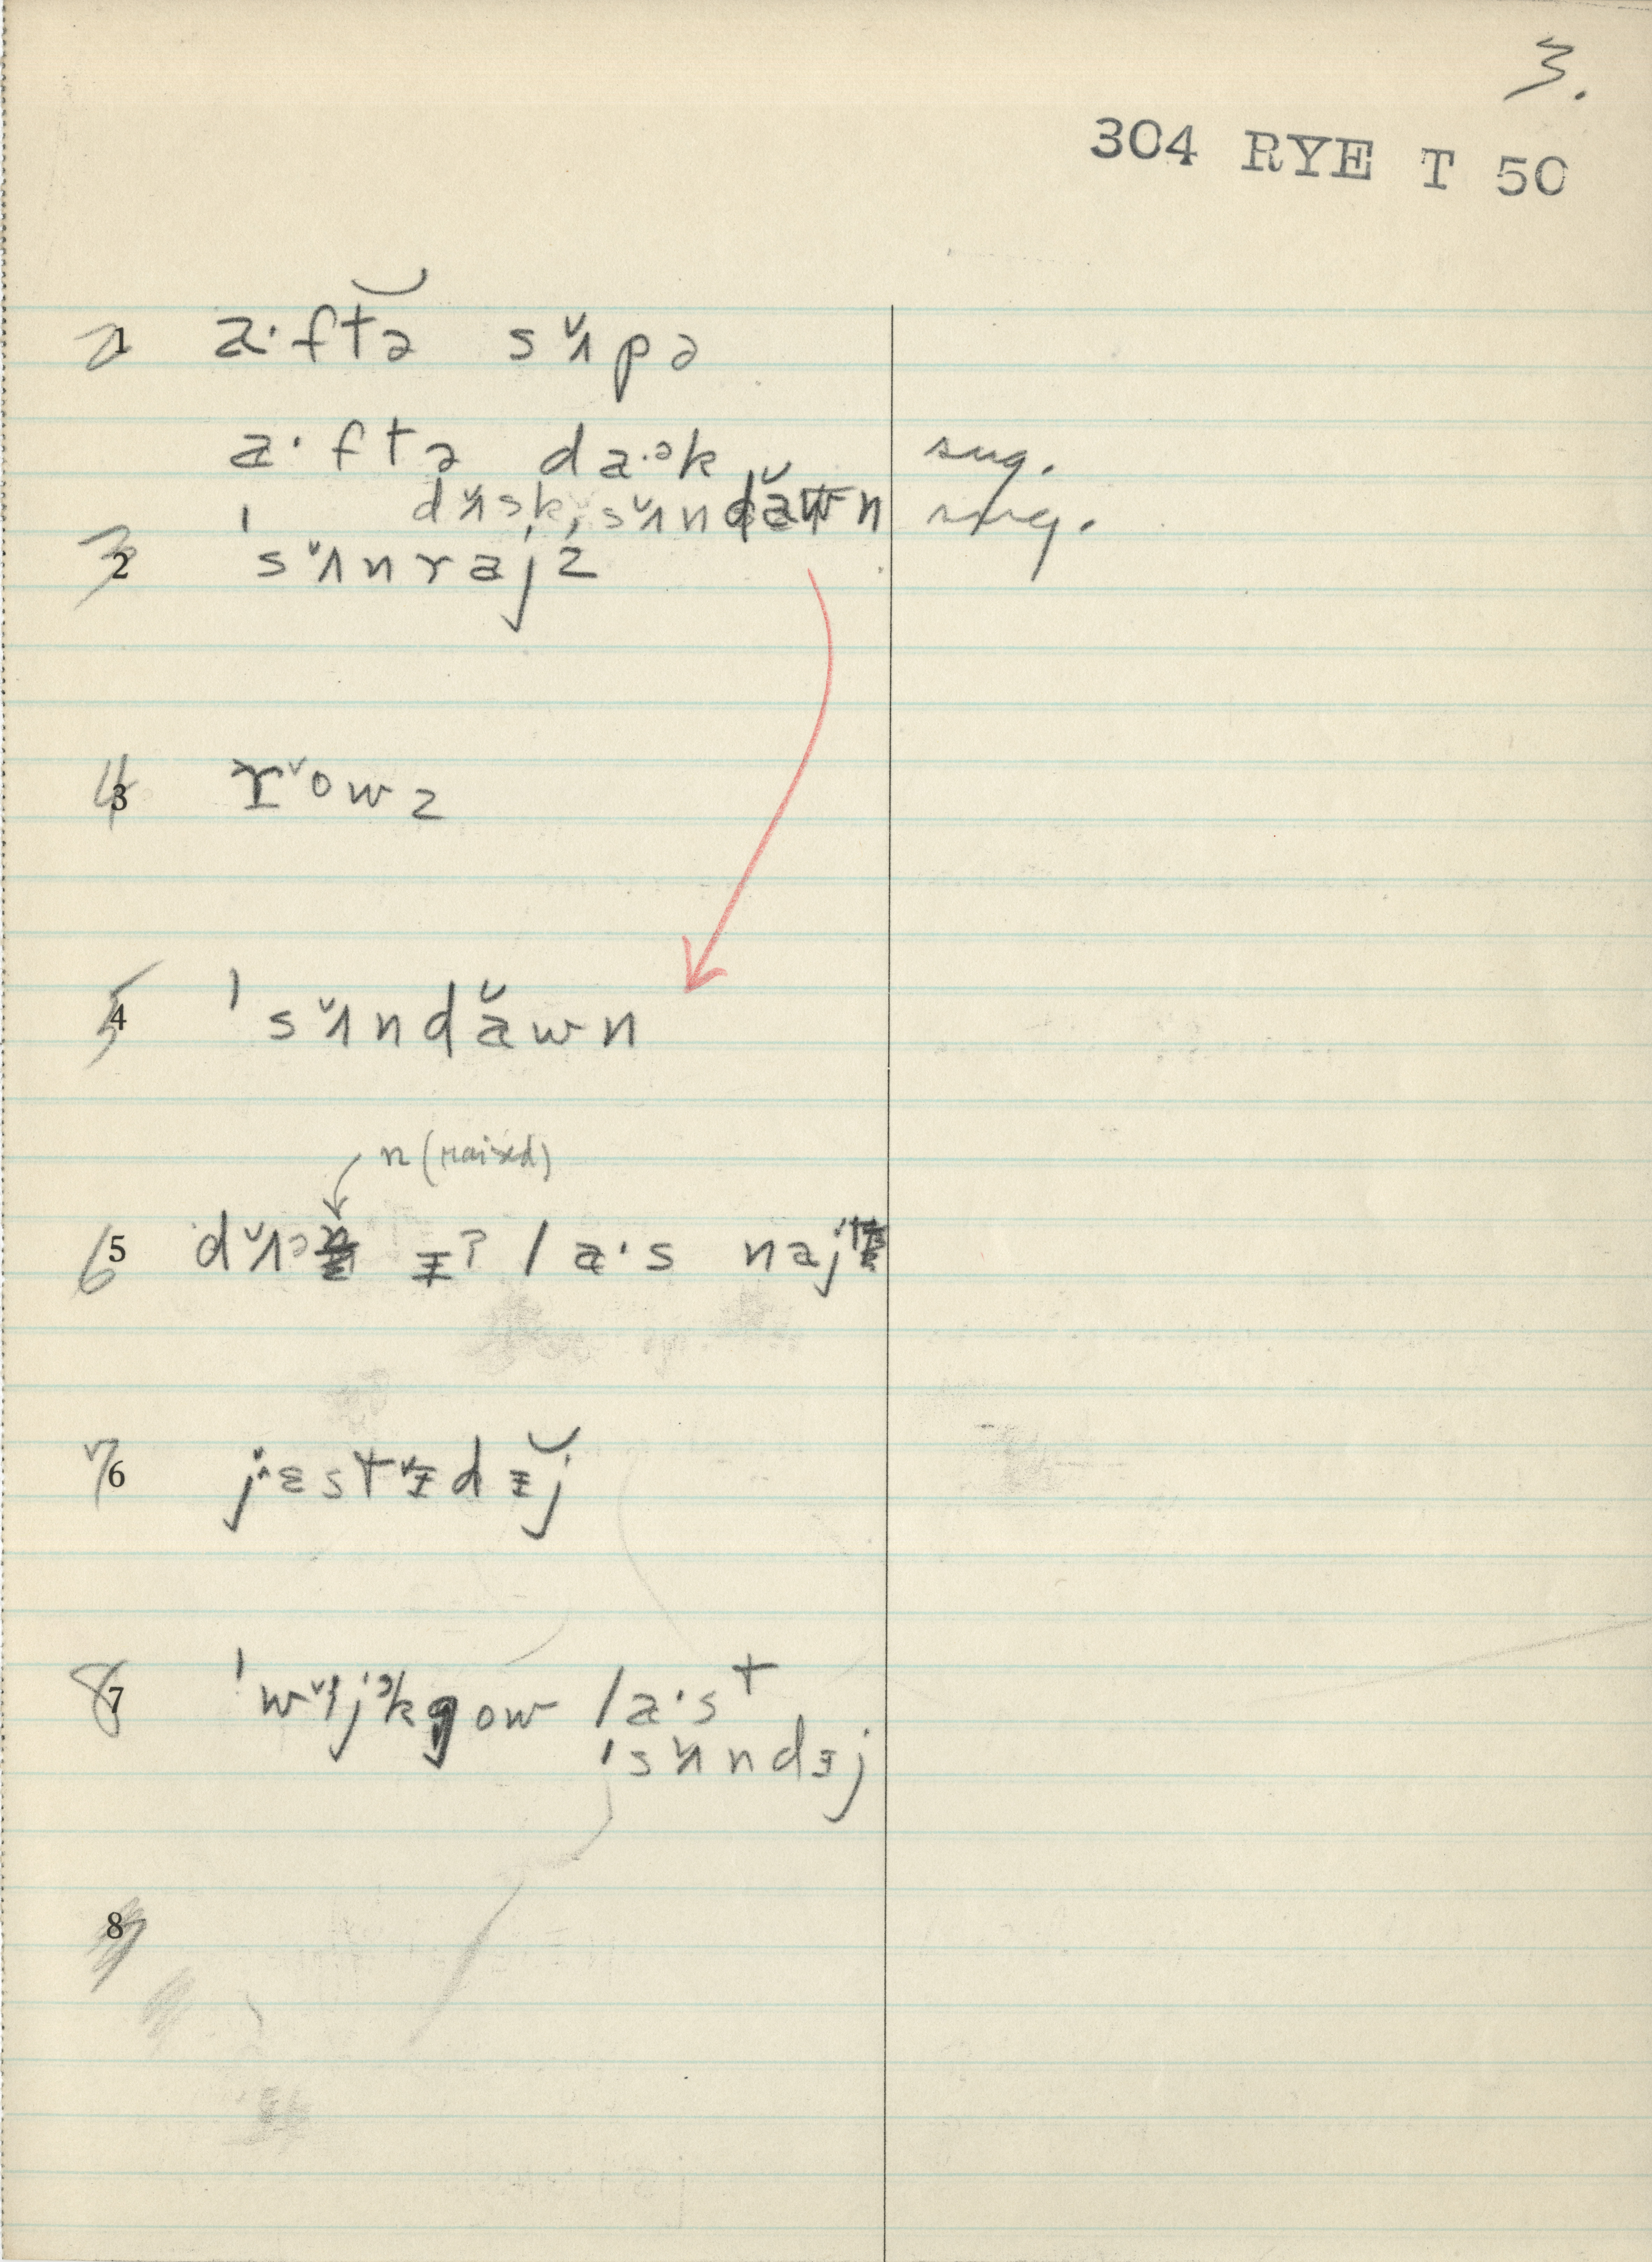 3.
304 RYE T 50
2 1 a·ftə sˇʌpə
a·ftə da·ək sug.
dˇʌsk, sˇʌndăwn sug.
3 2 ˈsˇʌnrajz
4 3 rˇowz
5 4 ˈsˇʌndăwn
n (raised)
6 5 dˇʌə ɪ? la·s naj
7 6 jɛstˇɪdɪj
8 7 ow la·st
ˈsˇʌndɪj
8